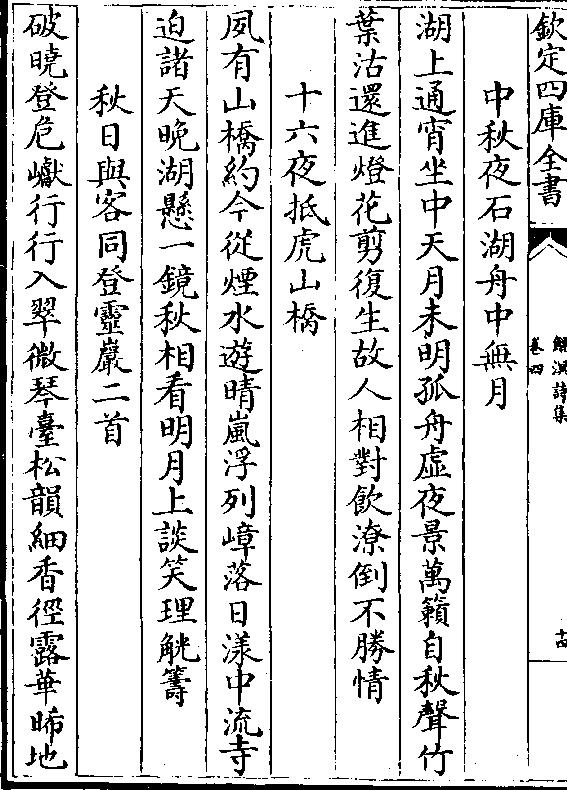 欽定四庫全書
卷四
中秋夜石湖舟中無月
湖上通宵坐中天月未明孤舟虛夜景萬籟自秋聲竹
葉沽還進燈花剪復生故人相對飲潦倒不勝情
十六夜抵虎山橋
夙有山橋約今從煙水遊晴嵐浮列嶂落日漾中流寺
迫諸天晚湖懸一鏡秋相看明月上談笑理觥籌
秋日與客同登靈巖二首
破曉登危巘行行入翠微琴臺松韻細香徑露華晞地